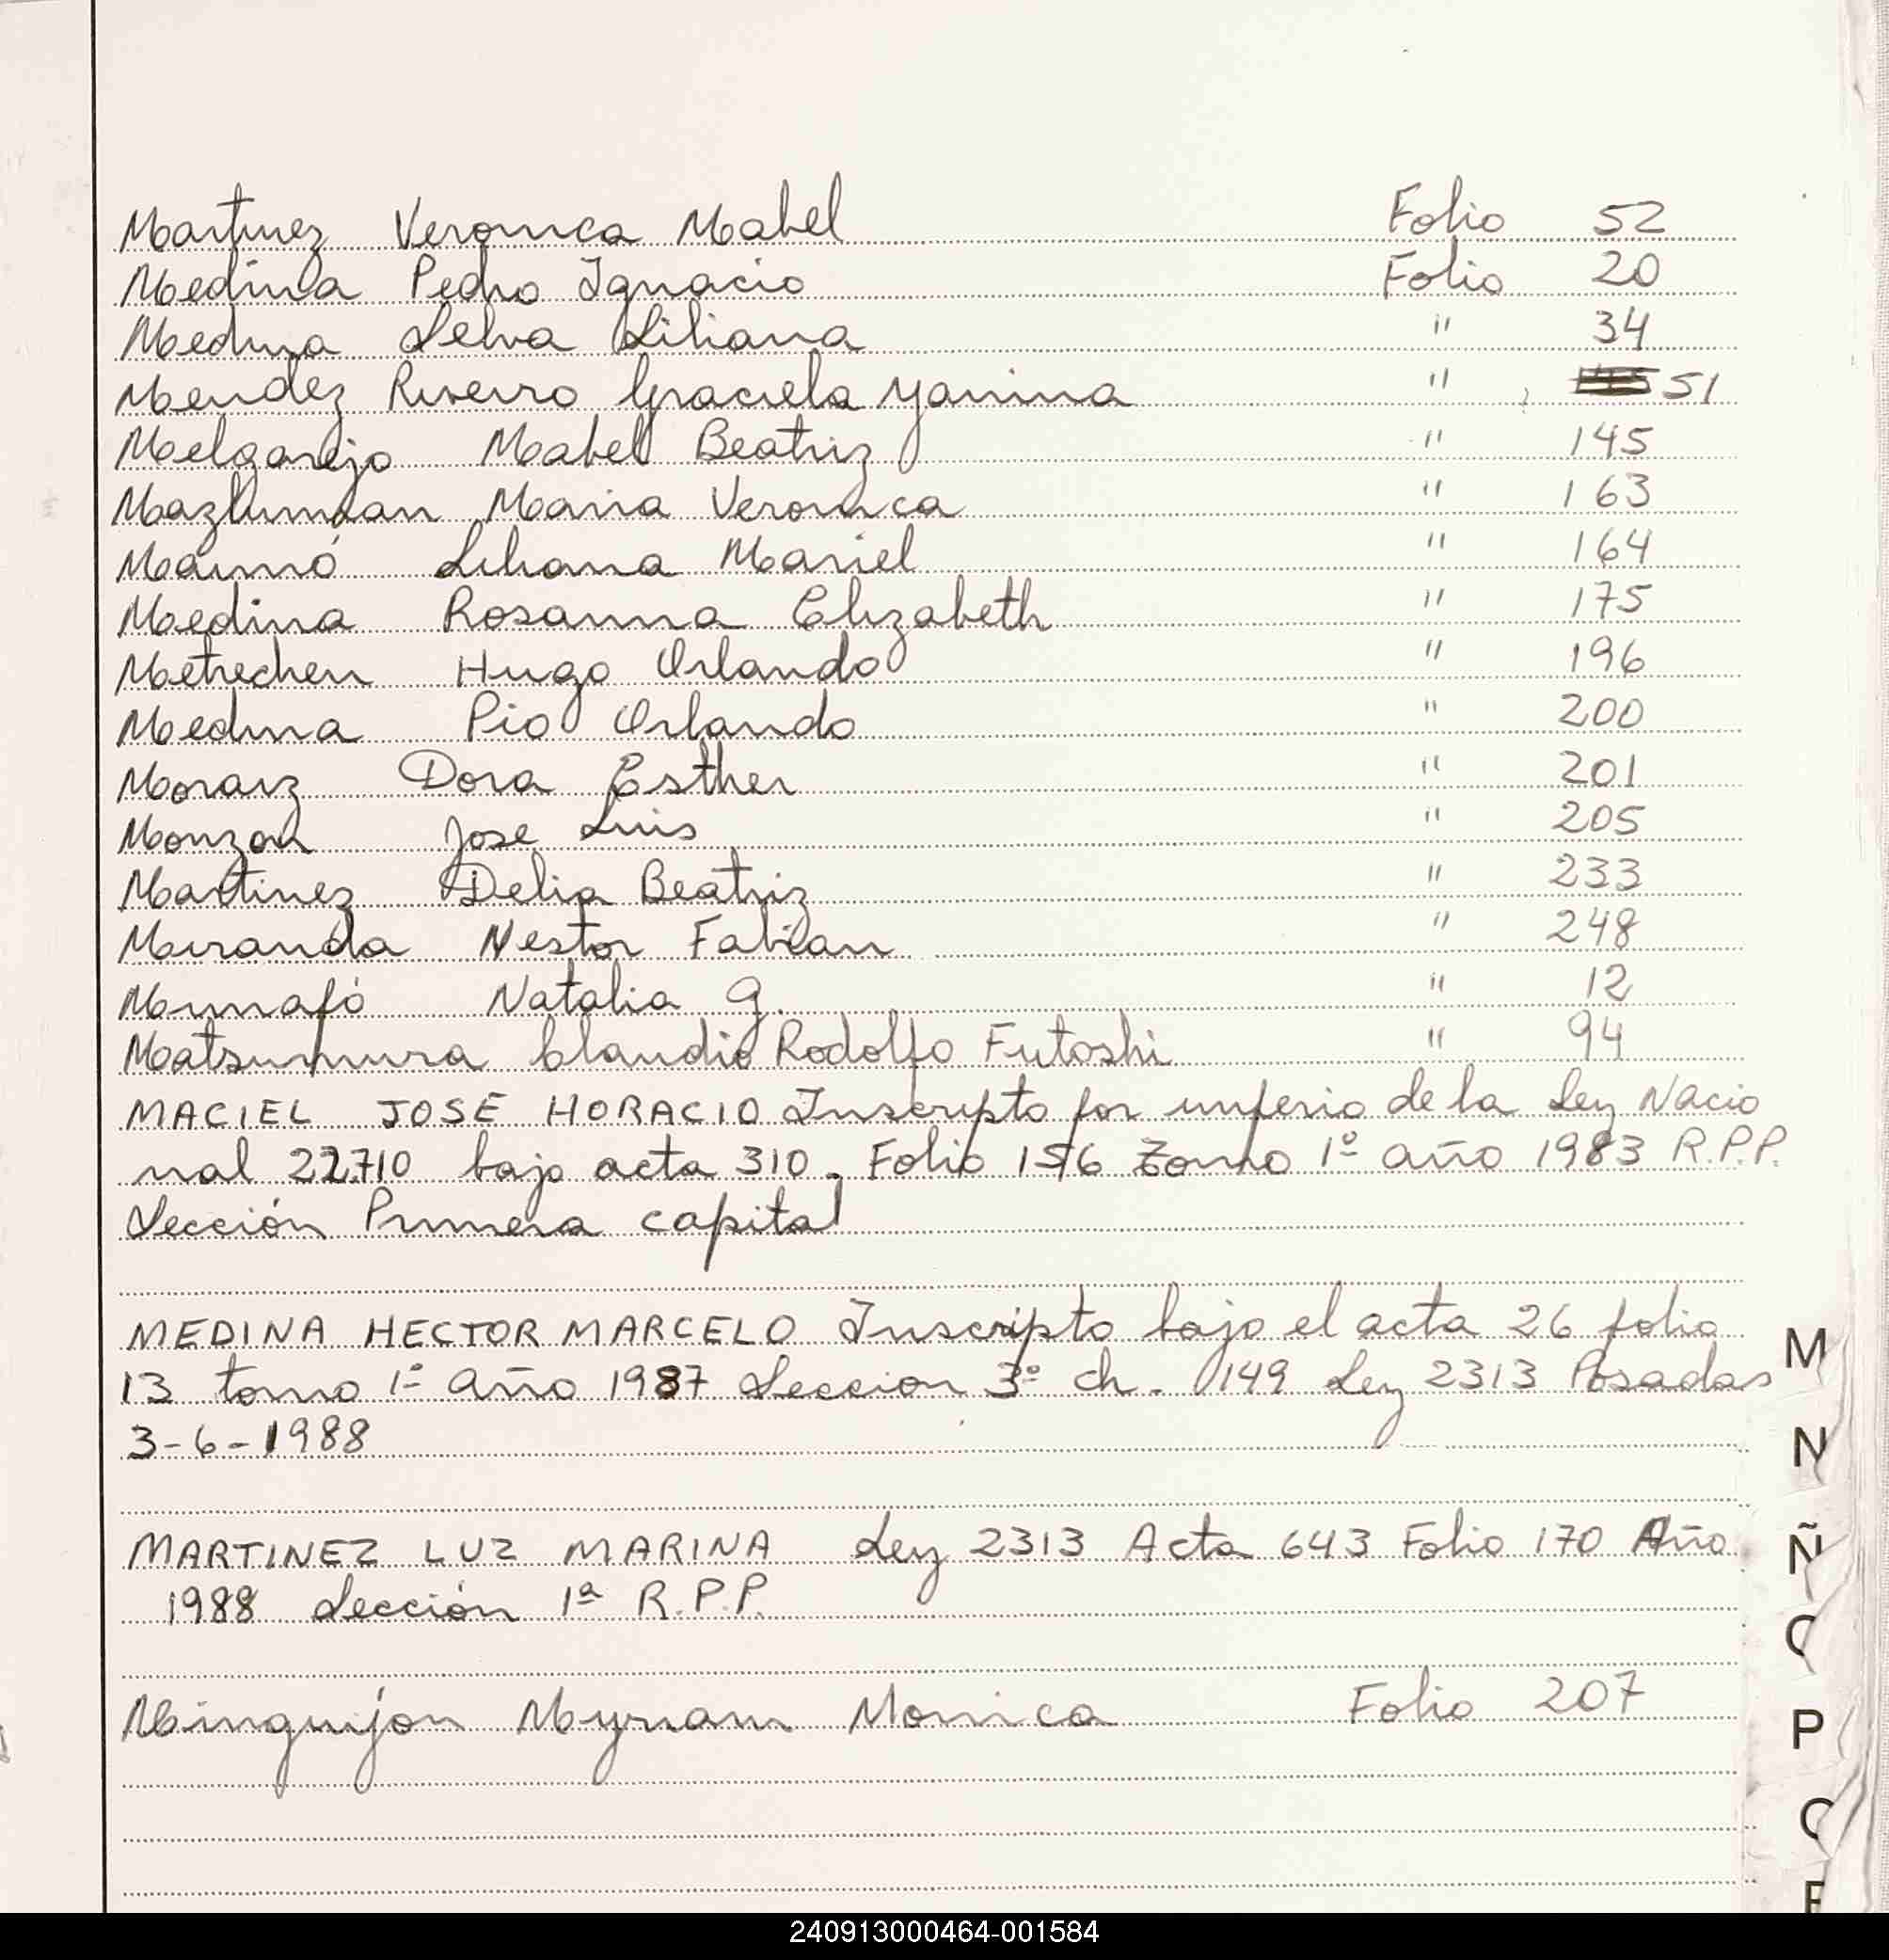 Martinez Veronica Mabel Folio 52
Medina Pedro Ignacio Folio 20
Medina Selva Liliana " 34
Mendez Riveiro Graciela Yanina " 51
Melgarejo Mabel Beatriz " 145
Mazlumian Maria Veronica " 163
Maimó Liliana Mariel " 164
Medina Rosanna Elizabeth " 175
Metrechen Hugo Orlando " 196
Medina Pio Orlando " 200
Moraiz Dora Esther " 201
Monzon Jose Luis " 205
Martinez Delia Beatriz " 233
Miranda Nestor Fabian " 248
Munafó Natalia G. " 12
Matsumura Claudio Rodolfo Futoshi " 94
MACIEL JOSE HORACIO Inscripto por imperio de la Ley Nacio
nal 22.710 bajo acta 310. Folio 156 Tomo 1º año 1983 R.P.P.
Sección Primera capital
MEDINA HECTOR MARCELO Inscripto bajo el acta 26 folio
13 tomo 1º año 1987 Seccion 3º ch. 149 Ley 2313 Posadas
3-6-1988
MARTINEZ LUZ MARINA Ley 2313 Acta 643 Folio 170 Año
1988 Sección 1ª R.P.P.
Minguijón Myriam Monica Folio 207
M
N
Ñ
O
P
240913000464-001584